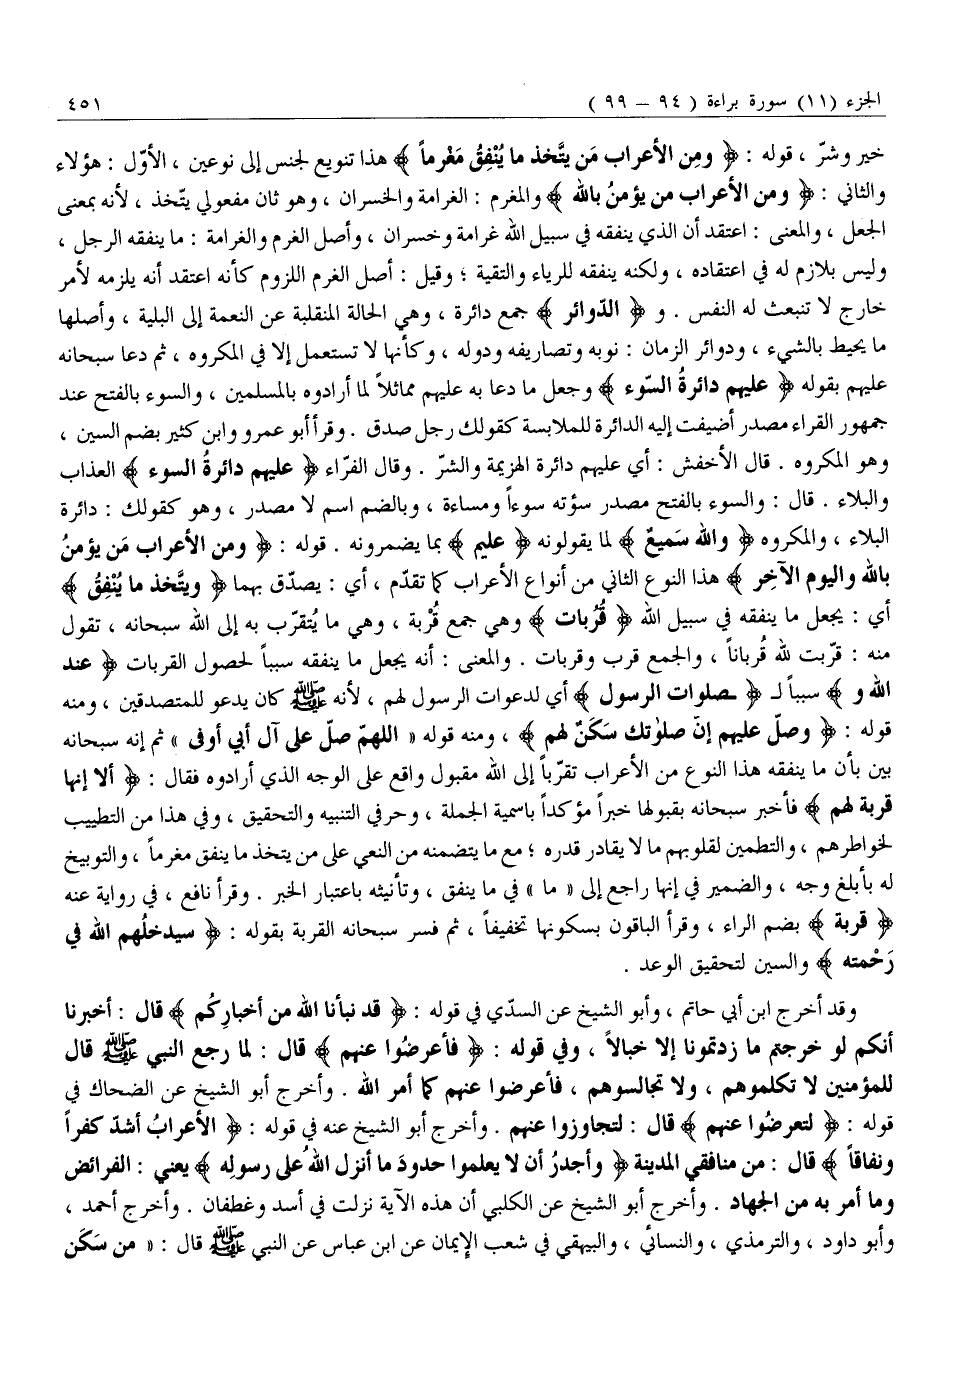 الجزء (١١) سورة براءة ( ٩٤ – ٩٩ ) ٤٥١
خير وشرّ ، قوله : ﴿ ومِن الأعراب مَن يتَّخذ ما يُنْفِقُ مَغْرماً ﴾ هذا تنويع لجنس إلى نوعين ، الأوّل : هؤلاء
والثاني : ﴿ ومن الأعراب من يؤمنُ بالله ﴾ والمغرم : الغرامة والخسران ، وهو ثان مفعولي يتّخذ ، لأنه بمعنى
الجعل ، والمعنى : اعتقد أن الذي ينفقه في سبيل الله غرامة وخسران ، وأصل الغرم والغرامة : ما ينفقه الرجل ،
وليس بلازم له في اعتقاده ، ولكنه ينفقه للرياء والتقية ؛ وقيل : أصل الغرم اللزوم كأنه اعتقد أنه يلزمه لأمر
خارج لا تنبعث له النفس . و ﴿ الدّوائر ﴾ جمع دائرة ، وهي الحالة المنقلبة عن النعمة إلى البلية ، وأصلها
ما يحيط بالشيء ، ودوائر الزمان : نوبه وتصاريفه ودوله ، وكأنها لا تستعمل إلا في المكروه ، ثم دعا سبحانه
عليهم بقوله ﴿ عليهم دائرةُ السّوء ﴾ وجعل ما دعا به عليهم مماثلاً لما أرادوه بالمسلمين ، والسوء بالفتح عند
جمهور القراء مصدر أضيفت إليه الدائرة للملابسة كقولك رجل صدق . وقرأ أبو عمرو وابن كثير بضم السين ،
وهو المكروه . قال الأخفش : أي عليهم دائرة الهزيمة والشرّ . وقال الفرّاء ﴿ عليهم دائرةُ السوء ﴾ العذاب
والبلاء . قال : والسوء بالفتح مصدر سؤته سوءاً ومساءة ، وبالضم اسم لا مصدر ، وهو كقولك : دائرة
البلاء ، والمكروه ﴿ والله سَميعٌ ﴾ لما يقولونه ﴿ عليم ﴾ بما يضمرونه . قوله : ﴿ ومن الأعراب مَن يؤمنُ
بالله واليوم الآخِر ﴾ هذا النوع الثاني من أنواع الأعراب كما تقدّم ، أي : يصدّق بهما ﴿ ويتَّخذ ما يُنْفِقُ ﴾
أي : يجعل ما ينفقه في سبيل الله ﴿ قُرُبات ﴾ وهي جمع قُرْبة ، وهي ما يُتقرّب به إلى الله سبحانه ، تقول
منه : قرّبت لله قُرباناً ، والجمع قرب وقربات . والمعنى : أنه يجعل ما ينفقه سبباً لحصول القربات ﴿ عند
الله و ﴾ سبباً لـ ﴿ ـصلوات الرسول ﴾ أي لدعوات الرسول لهم ، لأنه ﷺ كان يدعو للمتصدقين ، ومنه
قوله : ﴿ وصلّ عليهم إنّ صلوٰتك سَكَنٌ لهم ﴾ ، ومنه قوله « اللهمّ صلّ على آل أبي أوفى » ثم إنه سبحانه
بين بأن ما ينفقه هذا النوع من الأعراب تقرّباً إلى الله مقبول واقع على الوجه الذي أرادوه فقال : ﴿ ألا إنها
قربة لهم ﴾ فأخبر سبحانه بقبولها خبراً مؤكداً باسمية الجملة ، وحرفي التنبيه والتحقيق ، وفي هذا من التطييب
لخواطرهم ، والتطمين لقلوبهم ما لا يقادر قدره ؛ مع ما يتضمنه من النعي على من يتخذ ما ينفق مغرماً ، والتوبيخ
له بأبلغ وجه ، والضمير في إنها راجع إلى « ما » في ما ينفق ، وتأنيثه باعتبار الخبر . وقرأ نافع ، في رواية عنه
﴿ قربة ﴾ بضم الراء ، وقرأ الباقون بسكونها تخفيفاً ، ثم فسر سبحانه القربة بقوله : ﴿ سيدخلُهم الله في
رَحْمته ﴾ والسين لتحقيق الوعد .
وقد أخرج ابن أبي حاتم ، وأبو الشيخ عن السدّي في قوله : ﴿ قد نبأنا الله من أخبارِكُم ﴾ قال : أخبرنا
أنكم لو خرجتم ما زدتمونا إلا خبالاً ، وفي قوله : ﴿ فأعرضُوا عنهم ﴾ قال : لما رجع النبي ﷺ قال
للمؤمنين لا تكلموهم ، ولا تجالسوهم ، فأعرضوا عنهم كما أمر الله . وأخرج أبو الشيخ عن الضحاك في
قوله : ﴿ لتعرضُوا عنهم ﴾ قال : لتجاوزوا عنهم . وأخرج أبو الشيخ عنه في قوله : ﴿ الأعرابُ أشدّ كفراً
ونفاقاً ﴾ قال : من منافقي المدينة ﴿ وأجدرُ أن لا يعلموا حدودَ ما أنزل اللهُ على رسولِه ﴾ يعني : الفرائض
وما أمر به من الجهاد . وأخرج أبو الشيخ عن الكلبي أن هذه الآية نزلت في أسد وغطفان . وأخرج أحمد ،
وأبو داود ، والترمذي ، والنسائي ، والبيهقي في شعب الإيمان عن ابن عباس عن النبي ﷺ قال : « من سَكَن